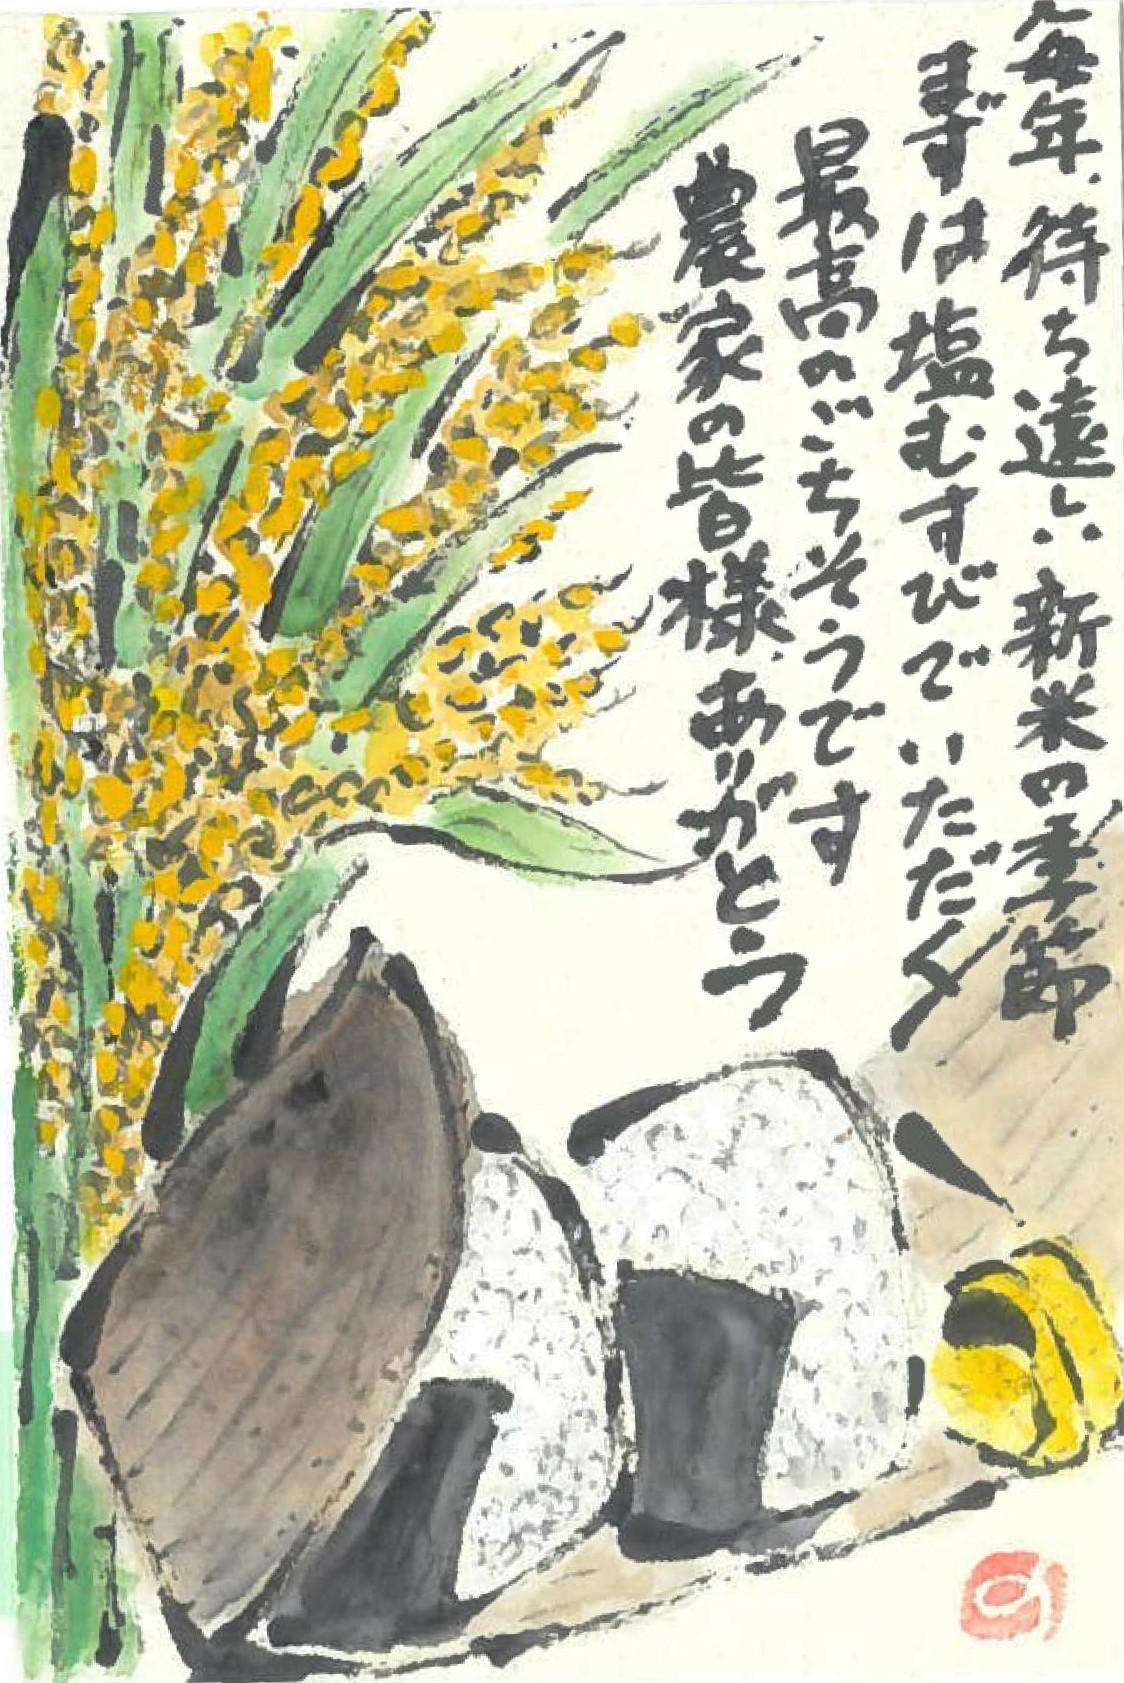 毎年、待ち遠しい新米の季節
まずは塩むすびでいただく
最高のごちそうです
農家の皆様、ありがとう
の